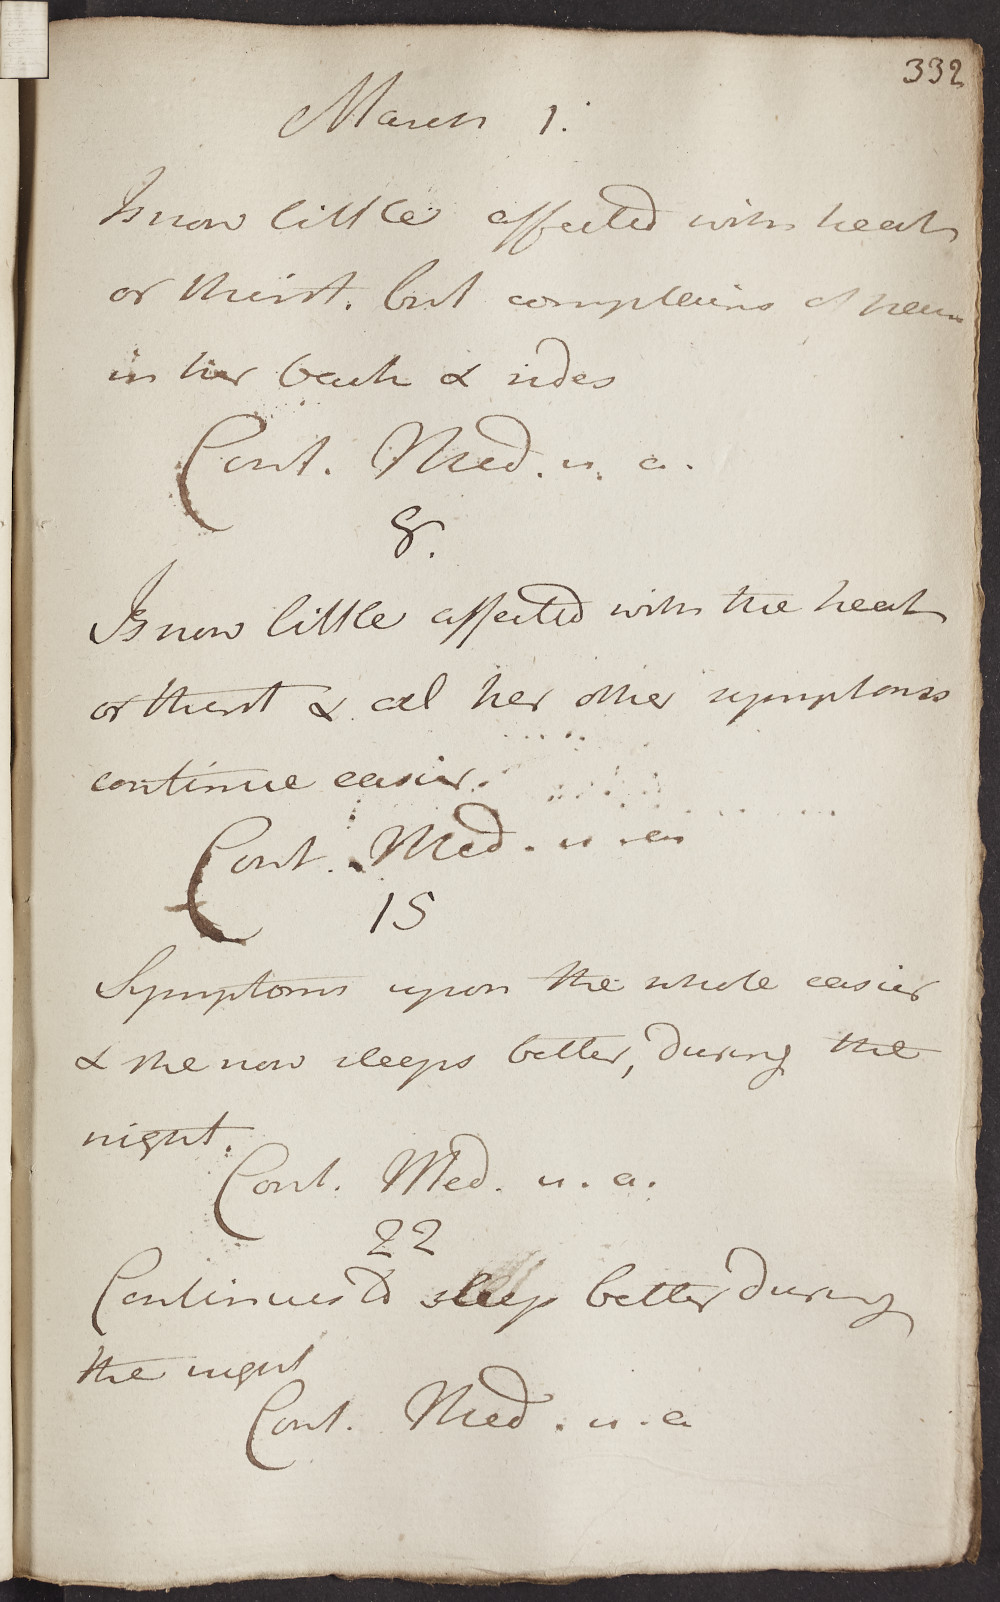 332
March 1.
Is now little affected with heat
or thirst. but complains of pain
in her back & sides
Cont. Med. u. a.
8.
Is now little affected with the heat
or thirst & all her other symptoms
continue easier.
Cont. Med. u. a.
15
Symptoms upon the whole easier
& she now sleeps better, during the
night.
Cont. Med. u. a.
22
Continues to sleep better during
the night
Cont. Med. u. a